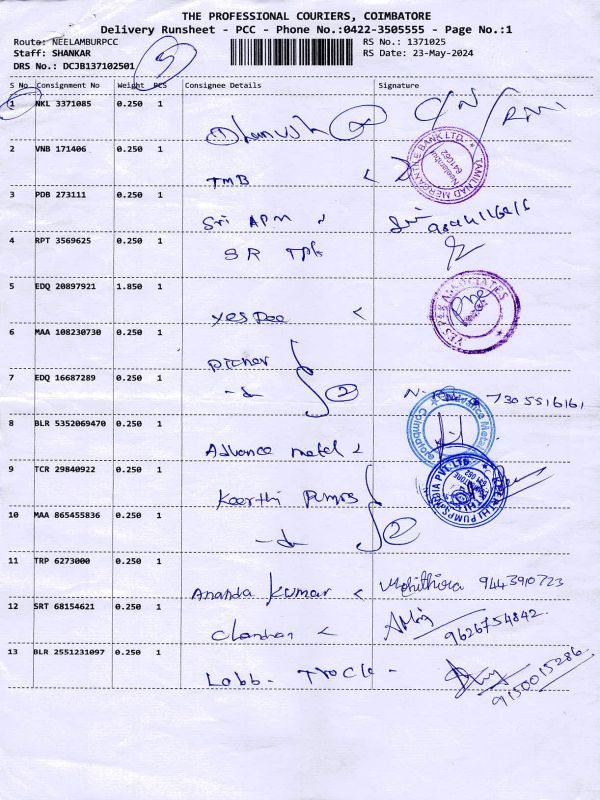 THE PROFESSIONAL COURIERS, COIMBATORE
Delivery Runsheet - PCC - Phone No.:0422-3505555 - Page No.:1
Route: NEELAMBURPCC
RS No.: 1371025
Staff: SHANKAR
RS Date: 23-May-2024
DRS No.: DCJB137102501
S No Consignment No Weight PCS Consignee Details Signature
1 NKL 3371085 0.250 1
Dhanush
2 VNB 171406 0.250 1
TMB
TAMILNAD MERCANTILE BANK LTD.
Neelambur
641062
3 PDB 273111 0.250 1
Sri APM
4 RPT 3569625 0.250 1
SR Tpt
5 EDQ 20897921 1.850 1
yes pee
6 MAA 108230730 0.250 1
Pitcher
7 EDQ 16687289 0.250 1
-do- 2 7305516161
8 BLR 5352069470 0.250 1
Advance metal
9 TCR 29840922 0.250 1
Keerthi Pumps
10 MAA 865455836 0.250 1
-do- 2
11 TRP 6273000 0.250 1
Ananda Kumar Mohithira 9443910723
12 SRT 68154621 0.250 1
9626754842
13 BLR 2551231097 0.250 1
9150015286